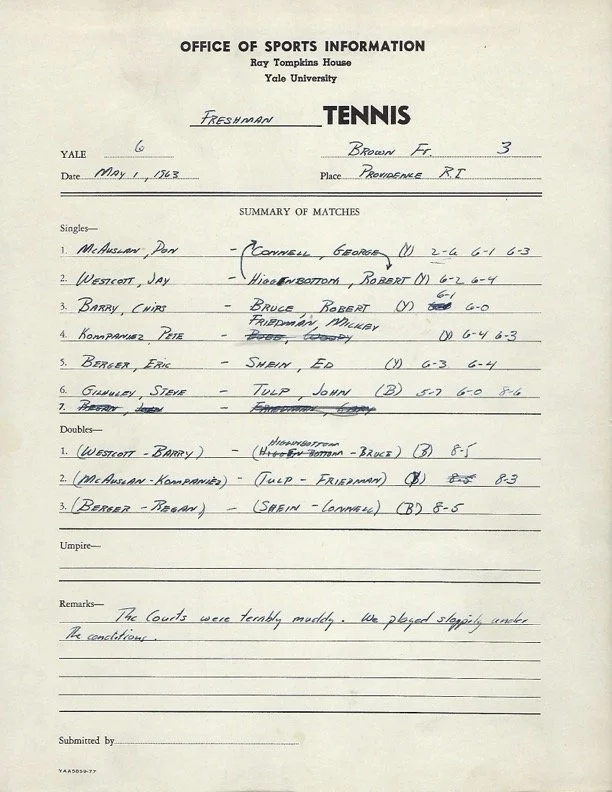 OFFICE OF SPORTS INFORMATION
Ray Tompkins House
Yale University
FRESHMAN TENNIS
YALE 6 BROWN Fr. 3
Date MAY 1, 1963 Place PROVIDENCE R.I
SUMMARY OF MATCHES
Singles—
1. MCAUSLAN, DON - CONNELL, GEORGE (Y) 2-6 6-1 6-3
2. WESTCOTT, JAY - HIGGENBOTTOM, ROBERT (Y) 6-2 6-4
6-1
3. BARRY, CHIPS - BRUCE, ROBERT (Y) 6-0
FRIEDMAN, MICKEY
4. KOMPANIEZ, PETE - (Y) 6-4 6-3
5. BERGER, ERIC - SHEIN, ED (Y) 6-3 6-4
6. GILHULEY, STEVE - TULP, JOHN (B) 5-7 6-0 8-6
7. REGAN, - FRIEDMAN, GARY
Doubles—
HIGGINBOTTOM
1. (WESTCOTT - BARRY) - (HIGGENBOTTOM - BRUCE) (B) 8-5
2. (MCAUSLAN - KOMPANIEZ) - (TULP - FRIEDMAN) 8-5 8-3
3. (BERGER - REGAN) - (SHEIN - CONNELL) (B) 8-5
Umpire—
Remarks—
The Courts were terribly muddy. We played sloppily under
the conditions.
Submitted by
YAA5859-77